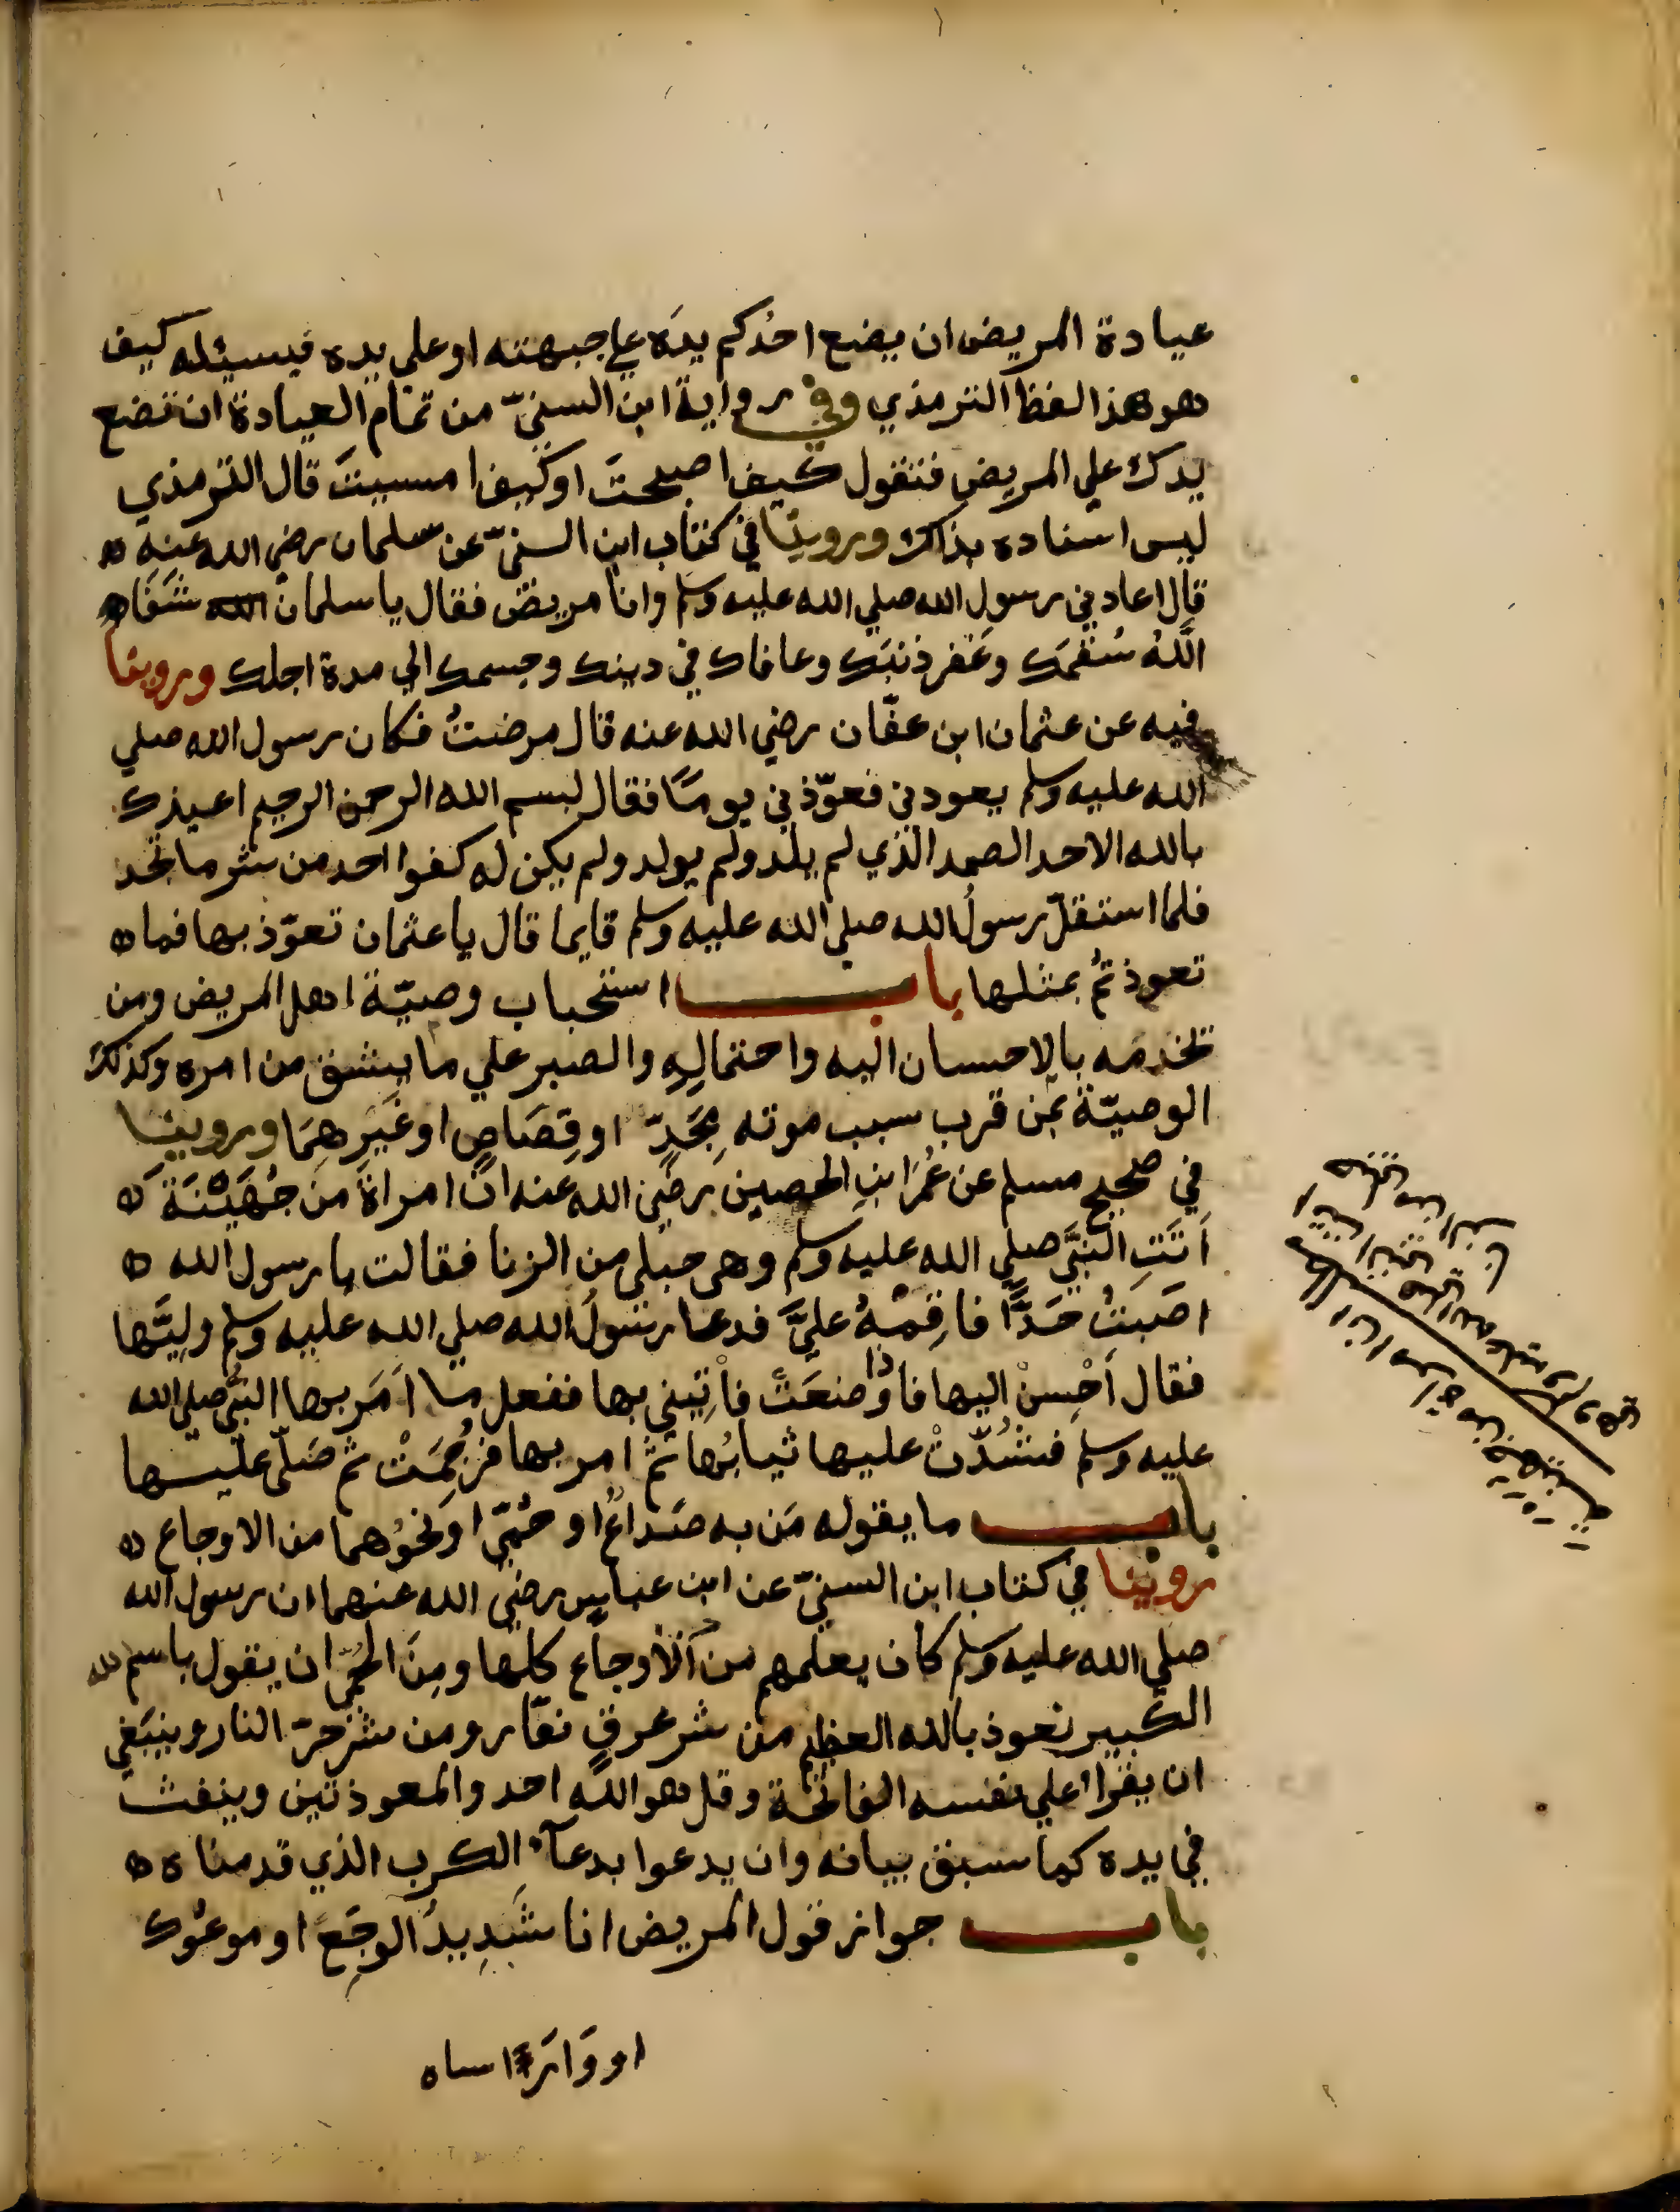 عيادة المريض ان يضع احدُكم يدَه علي جبهته او علي يده فيسئله كيف
هو هذا لفظ الترمذي وفي رواية ابن السنيّ من تمام العيادة ان تضع
يدك علي المريض فتقول كيف اصبحتَ او كيف امسيتَ قال الترمذي
ليس اسناده بذاك وروينا في كتاب ابن السنيّ عن سلمان رضي الله عنه
قال اعادني رسول الله صلي الله عليه وسلم وانا مريض فقال يا سلمان شَفَا
اللهُ سُقمَك وغَفر ذنبَك وعافاك في دينك وجسمك الي مدة اجلك وروينا
فيه عن عثمان ابن عفّان رضي الله عنه قال مرضتُ فكان رسول الله صلي
الله عليه وسلم يعودني فعوّذني يومًا فقال بسم الله الرحمن الرحيم اعيذك
بالله الاحد الصمد الذي لم يلد ولم يولد ولم يكن له كفوا احد من شر ما تجد
فلما استقلّ رسولُ الله صلي الله عليه وسلم قايما قال يا عثمان تعوّذ بها فما
تعوذتُم بمثلها باب استحباب وصيّة اهل المريض ومن
يخدمه بالاحسان اليه واحتمالِهِ والصبر علي ما يشق من امره وكذلك
الوصيّة بمن قرب سبب موته بِحَدٍّ او قِصَاصٍ او غَيرِهِمَا وروينا
في صحيح مسلم عن عُمرَابنِ الحصين رضي الله عنه انّ امراةً من جُهَيْنَةَ
اَتَتِ النبيَّ صلي الله عليه وسلم وهي حبلي من الزنا فقالت يا رسول الله
اصَبتُ حَدًّا فاقِمْهُ عليَّ فدعا رسُولُ الله صلي الله عليه وسلم وليَّها
فقال اَحْسِنْ اليها فاذا وضعَتْ فأتِيني بها ففعل ما اَمَر بها النبيُّ صلي الله
عليه وسلم فشُدّتْ عليها ثيابُها ثمّ امر بها فرُجِمَتْ ثم صَلّي عليها
باب ما يقوله مَن به صُداعٌ او حُمّي او نحوُهما من الاوجاع
روينا في كتاب ابن السنيّ عن ابن عباس رضي الله عنهما ان رسول الله
صلي الله عليه وسلم كان يعلمهم من الاوجاع كلها ومِنَ الحُمّي ان يقول باسم الله
الكبير نعوذ بالله العظيم من شر عرقٍ نعّار ومن شر حرّ النار وينبَغي
ان يقرا علي نفسه الفاتحة وقل هو الله احد والمعوذتين وينفث
في يده كما سبق بيانه وان يدعوا بدعآء الكرب الذي قدمناه
باب جواز قول المريض انا شَدِيدُ الوجَعِ او موعوك
او وَارَأساه